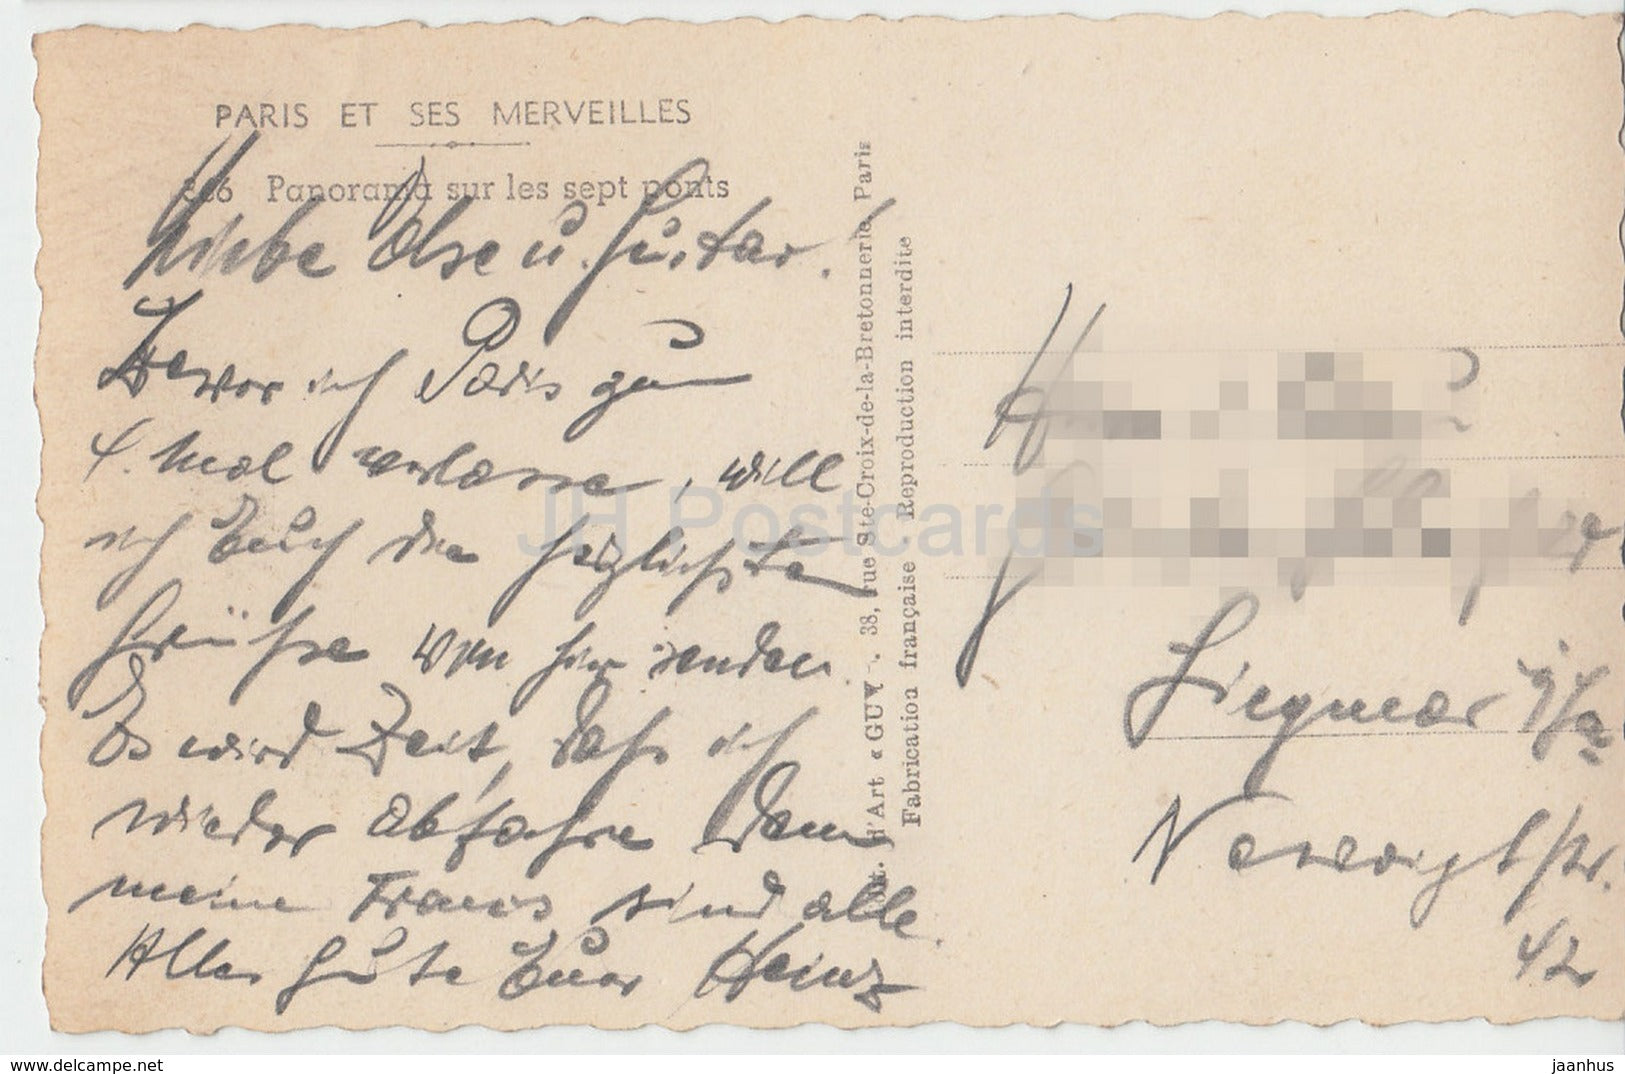 PARIS ET SES MERVEILLES
Panorama sur les sept ponts
Liebe Else u. Gustav.
Bevor ich Paris zum
4. Mal verlasse, will
ich Euch die herzlichsten
Grüsse von hier senden
Es wird Zeit, dass ich
wieder abfahre denn
meine Francs sind alle.
Alles Gute Euer Heinz
38, rue Ste-Croix-de-la-Bretonnerie, Paris
d'Art « GUY
Fabrication française Reproduction interdite
Siegmar i/Sa
Str.
42
JH Postcards
www.delcampe.net
jaanhus